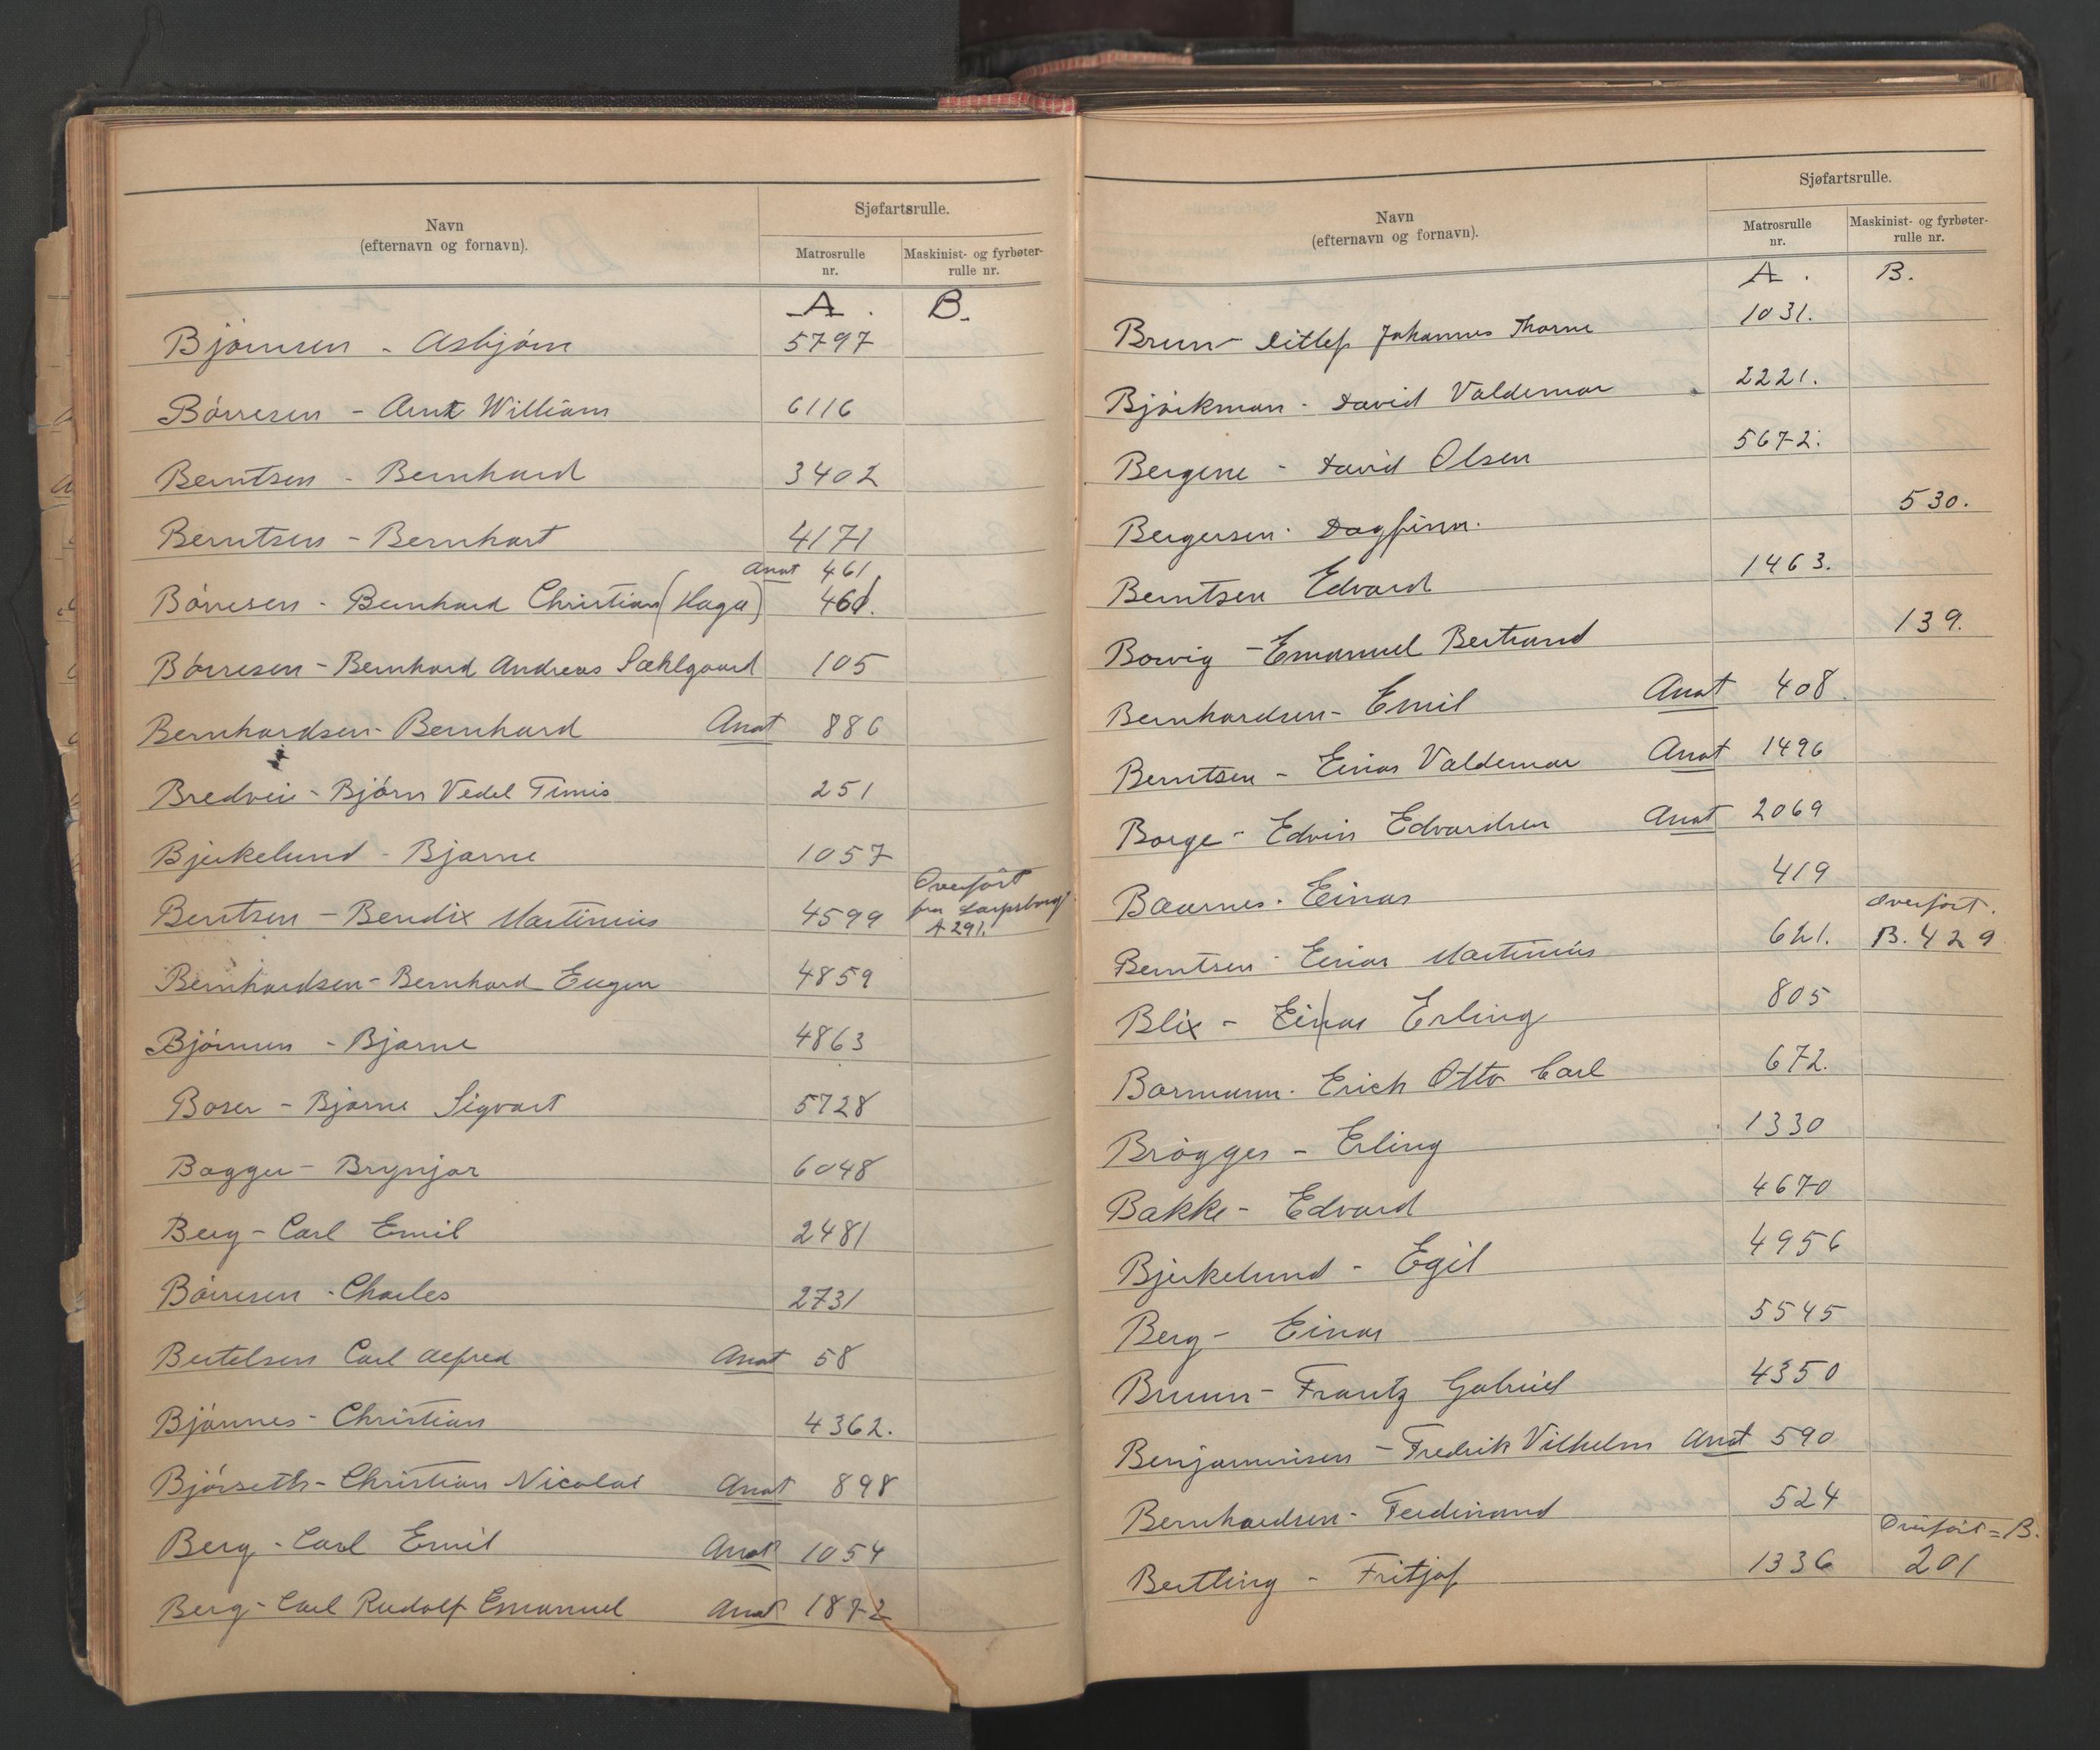 Navn
(efternavn og fornavn).
Sjøfartsrulle.
Matrosrulle
nr.
Maskinist- og fyrbøter-
rulle nr.
A. B.
Bjørnsen - Asbjørn 5797
Børresen - Arnt William 6116
Berntsen - Bernhard 3402
Berntsen - Bernhart 4171
Anat 461
Børresen - Bernhard Christian (Haga) 461.
Børresen - Bernhard Andreas Sæhlgaard 105
Bernhardsen - Bernhard Anat 886
Bredvei - Bjørn Vedel 251
Bjerkelund - Bjarne 1057
Overført
fra Sarpsborg
Bentsen - Bendix Martinius 4599 A 291.
Bernhardsen - Bernhard Eugen 4859
Bjørnsen - Bjarne 4863
Boser - Bjarne Sigvart 5728
Bagger - Brynjar 6048
Berg - Carl Emil 2481
Børresen - Charles 2731
Bertelsen Carl Alfred Anat 58
Bjønnes - Christian 4362.
Bjørseth - Christian Nicolai Anat 898
Berg - Carl Emil Anat 1054
Berg - Carl Rudolf Emanuel Anat 1872
Navn
(efternavn og fornavn).
Sjøfartsrulle.
Matrosrulle
nr.
Maskinist- og fyrbøter-
rulle nr.
A. B.
Brun - Ditlef Johannes Thorne 1031.
Bjørkman - David Valdemar 2221.
Bergene - David Olsen 5672.
Bergersen - Dagfinn. 530.
Berntsen Edvard 1463.
Borvig - Emanuel Bertrand 139.
Bernhardsen - Emil Anat 408
Berntsen - Einar Valdemar Anat 1496
Borge - Edvin Edvardsen Anat 2069
Baarnes - Einar 419
overført.
Berntsen - Einar Martinius 621. B. 429
Blix - Einar Erling 805
Bormann - Erich Otto Carl 672.
Brøgger - Erling 1330
Bakke - Edvard 4670
Bjerkelund - Egil 4956
Berg - Einar 5545
Bruun - Frantz Gabriel 4350
Benjaminsen - Fredrik Vilhelm Anat 590
Bernhardsen - Ferdinand 524
Overført = B.
Bertling - Fritjof 1336 201